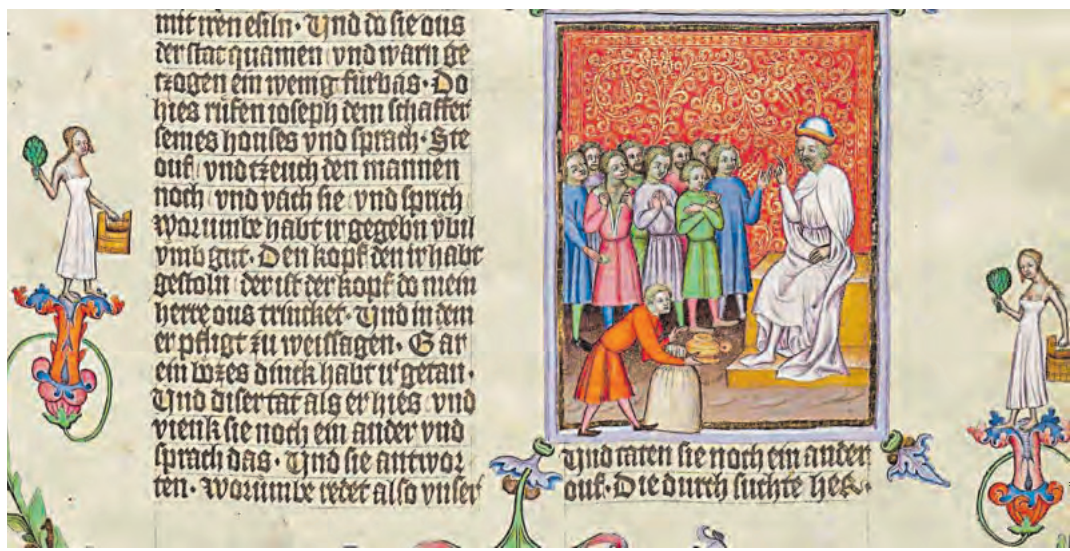 mit iren eſiln · Und do ſie ous
der ſtat quamen vnd warn ge
tzogen ein wenig fürbas · Do
hies rufen ioseph dem ſchaffer
ſeines houſes vnd ſprach · Ste
ouf vnd tzeuch den mannen
noch vnd vach ſie vnd ſprich
worumbe habt ir gegebn vbil
vmb gut · Den kopf den ir habt
geſtoln der iſt der kopf do mein
herre ous trincket · Und in dem
er pfligt zu weiſſagen · Gar
ein bozes dinck habt ir getan ·
Und diſer tat als er hies vnd
vienk ſie noch ein ander vnd
ſprach das · Und ſie antwor
ten · worumbe redet alſo vnſer
Und taten ſie noch ein ander
ouf · Die durch ſuchte